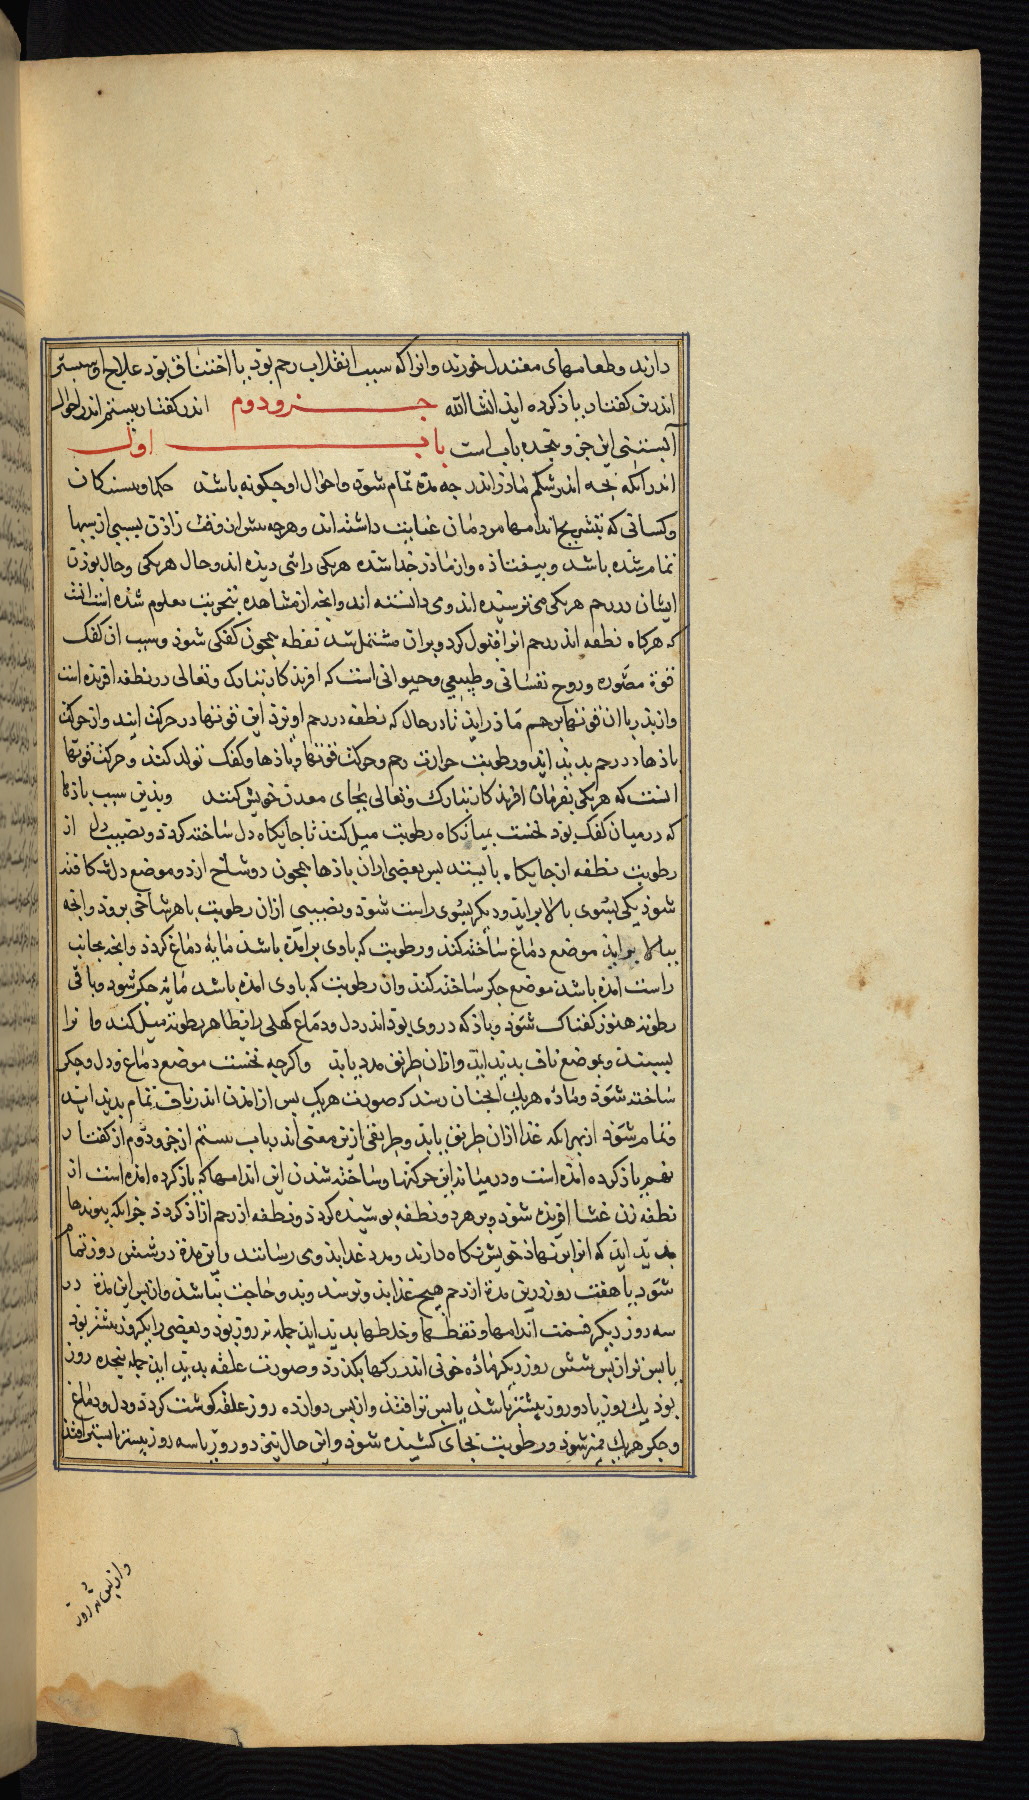 دارند و طعامهای معتدل خورند و انرا که سبب انقلاب رحم بوذ یا اختناق بوذ علاج او سپستر
اندرین کفتار یاذ کرده اید انشاالله جزو دوم اندر کفتار بیستم اندر احوال
آبستنی این جزو پنجده باب است باب اول
اندر انکه بچه اندر شکم ماذر اندر چه مدة تمام شوذ و احوال او چکونه باشد حکما و پسندکان
و کسانی که بتشریح اندامها مردمان عنایت داشته اند و هرچه پیش از وقت زاذن بسببی از سببها
تمام شده باشد و بیفتاذه و از ماذر جدا شده هریکی را می دیده اند و حال هریکی و حال بوذن
ایشان در رحم هریکی می پرسیده اند و می دانسته اند و انچه از مشاهده و تجربت معلوم شده است انست
که هرکاه نطفه اندر رحم افتد و رحم انرا قبول کرد و بران مشتمل شد نطفه همچون کفکی شوذ و سبب ان کفک
قوة مصوره و روح نفسانی و طبیعی و حیوانی است که افریذکار تبارک و تعالی در نطفه افریده است
و از پذر با ان قوتها برحم ماذر اید تا در حال که نطفه در رحم اوفتد این قوتها در حرکت ایند و از حرکت
باذها در رحم پدید اید و رطوبت حرارت رحم و حرکت قوتها و باذها و کفک تولد کند و حرکت قوتها
انست که هریکی بفرمان افریذکار تبارک و تعالی بجای معدن خویش کنند و بذین سبب باذها
که در میان کفک بوذ نخست بمیانکاه رطوبت میل کند تا جایکاه دل ساخته کردذ و نصیب دل از
رطوبت نطفه ان جایکاه بایستد پس بعضی ازان باذها همچون دو شاخ ازذو موضع دل شکافته
شوذ یکی بسوی بالا براید و دیکر بسوی راست شوذ و نصیبی ازان رطوبت با هر شاخی بروذ و انچه
ببالا براید موضع دماغ ساخته کند و رطوبت که با وی برآمده باشد مایه دماغ کردذ و انچه بجانب
راست امده باشد موضع جکر ساخته کند و ان رطوبت که با وی امده باشد مایه جکر شوذ و باقی
رطوبت هنوز کفناک شوذ و باذ که در وی بوذ اندر دل و دماغ کهلی را بظاهر رطوبت میل کند و انرا
ببیند و بموضع ناف پدید اید و ازان طریق مدد یابد و اکرچه نخست موضع دماغ و دل و جکر
ساخته شوذ و ماده هریک انجنان رسد که صورت هریک پس از امدن اندر ناف تمام پدید اید
و تمام شوذ از بهر انکه غذا ازان طریق یابد و طریقی ازین معنی اندر باب بیستم از جزو دوم از کفتار
نهم یاذ کرده امده است و در میانه این حرکتها و ساخته شدن این اندامها که یاذ کرده امده است از
نطفه زن غشا افریذه شوذ و بر هر دو نطفه پوشیده کردذ و نطفه از رحم ازاذ کردذ چرا که پیوندها
پدید اید که انرا بر نهاذ خویش نکاه دارند و مدد غذا بذو می رسانند و این مدة در شش روز تمام
شوذ یا هفت روز و درین مدة از رحم هیچ غذا بذو نرسد و بذو حاجت نباشد و از پس این مدة در
سه روز دیکر قسمت اندامها و نقطها و خطها پدید اید این جمله نه روز بوذ و بعضی را یکروز بیشتر بوذ
یا پس تر از پس شش روز دیکر ماده خونی اندر رکها بکذرذ و صورت علقه پدید اید این جمله پنجده روز
بوذ یک روز یا دو روز بیشتر باشد یا پس تر افتد و از پس دوازده روز علقه کوشت کردذ و دل و دماغ
و جکر هریک ممیز شوذ و رطوبت بجای کشیده شوذ و این حال نیز دو روز یا سه روز بیشتر یا پستر افتذ
و از پس نه روز